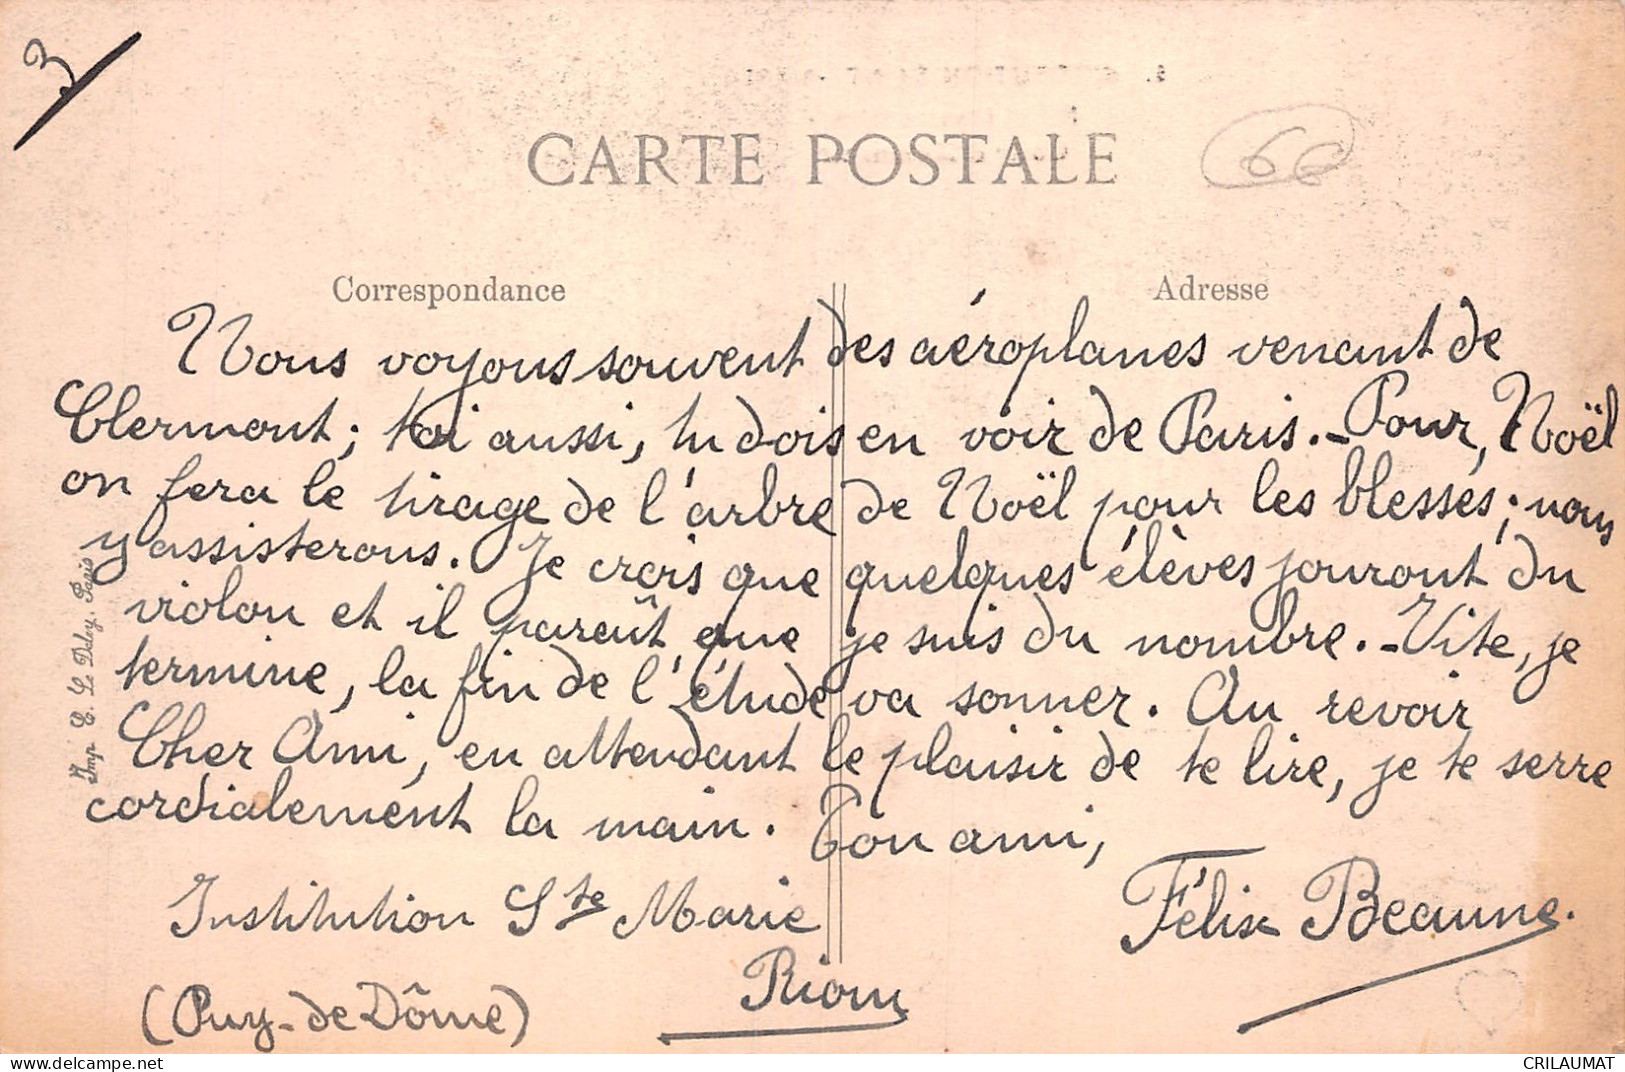 3
CARTE POSTALE
66
Correspondance
Adresse
Nous voyons souvent des aéroplanes venant de
Clermont; toi aussi, tu dois en voir de Paris.-Pour, Noël
on fera le tirage de l'arbre de Noël pour les blessés; nous
y assisterons. Je crois que quelques élèves jouront du
violon et il paraît que je suis du nombre.-Vite, je
termine, la fin de l'étude va sonner. Au revoir
Cher Ami, en attendant le plaisir de te lire, je te serre
cordialement la main. Ton ami,
Institution Ste Marie
Félix Beaune.
Riom
(Puy-de Dôme)
Imp. E. Le Deley, Paris
CRILAUMAT